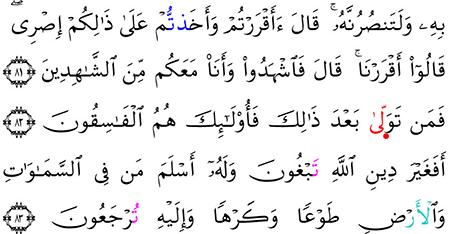 بِهِۦ وَلَتَنصُرُنَّهُۥۚ قَالَ ءَأَقْرَرْتُمْ وَأَخَذتُّمْ عَلَىٰ ذَٰلِكُمْ إِصْرِى
قَالُوٓا۟ أَقْرَرْنَاۚ قَالَ فَٱشْهَدُوا۟ وَأَنَا۠ مَعَكُم مِّنَ ٱلشَّٰهِدِينَ ٨١
فَمَن تَوَلَّىٰ بَعْدَ ذَٰلِكَ فَأُو۟لَٰٓئِكَ هُمُ ٱلْفَٰسِقُونَ ٨٢
أَفَغَيْرَ دِينِ ٱللَّهِ تَبْغُونَ وَلَهُۥٓ أَسْلَمَ مَن فِى ٱلسَّمَٰوَٰتِ
وَٱلْأَرْضِ طَوْعًا وَكَرْهًا وَإِلَيْهِ تُرْجَعُونَ ٨٣